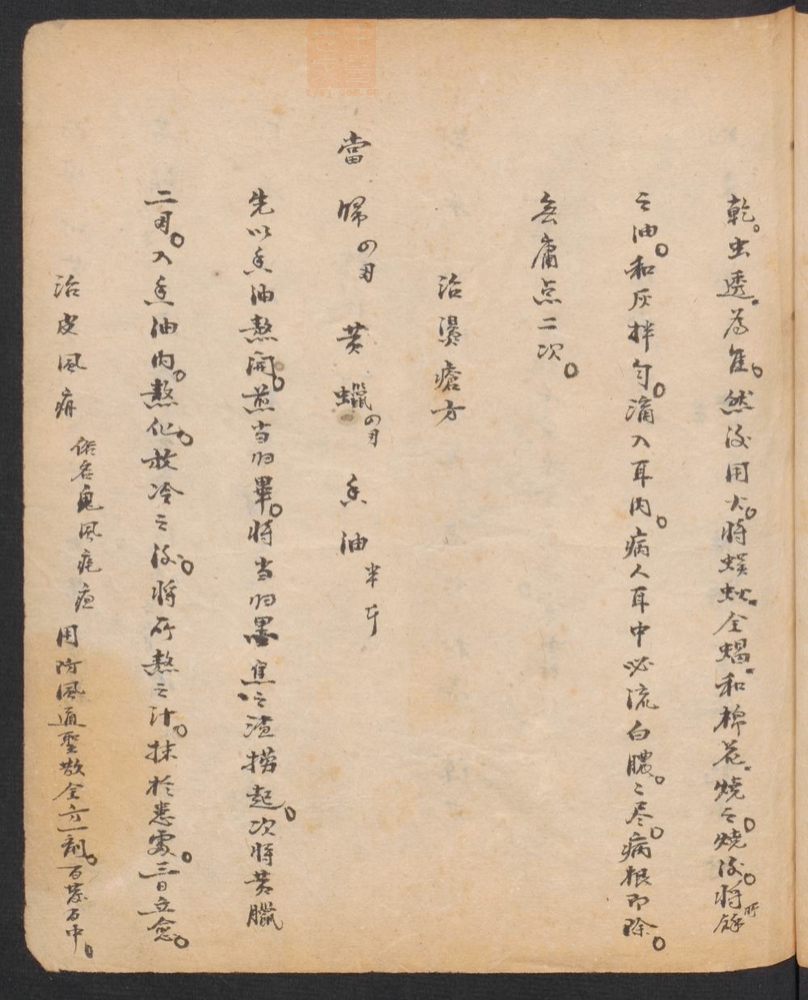 乾。虫透。為准。然後用火。将蜈蚣。全蝎。和棉花。燒之。燒後。将所餘
之油。和灰拌勻。滴入耳內。病人耳中必流白膿。〻尽。病根即除。
無庸点二次。
治燙瘡方
當歸四錢 黃蠟四錢 香油半斤
先以香油熬開。煎当归畢。将当归黑焦之渣捞起。次将黃臘
二錢。入香油內。熬化。放冷之後。将所熬之汁。抹於患處。三日立愈。
治皮風病 俗名鬼風疙疸 用防風通聖散全方一劑。百發百中。